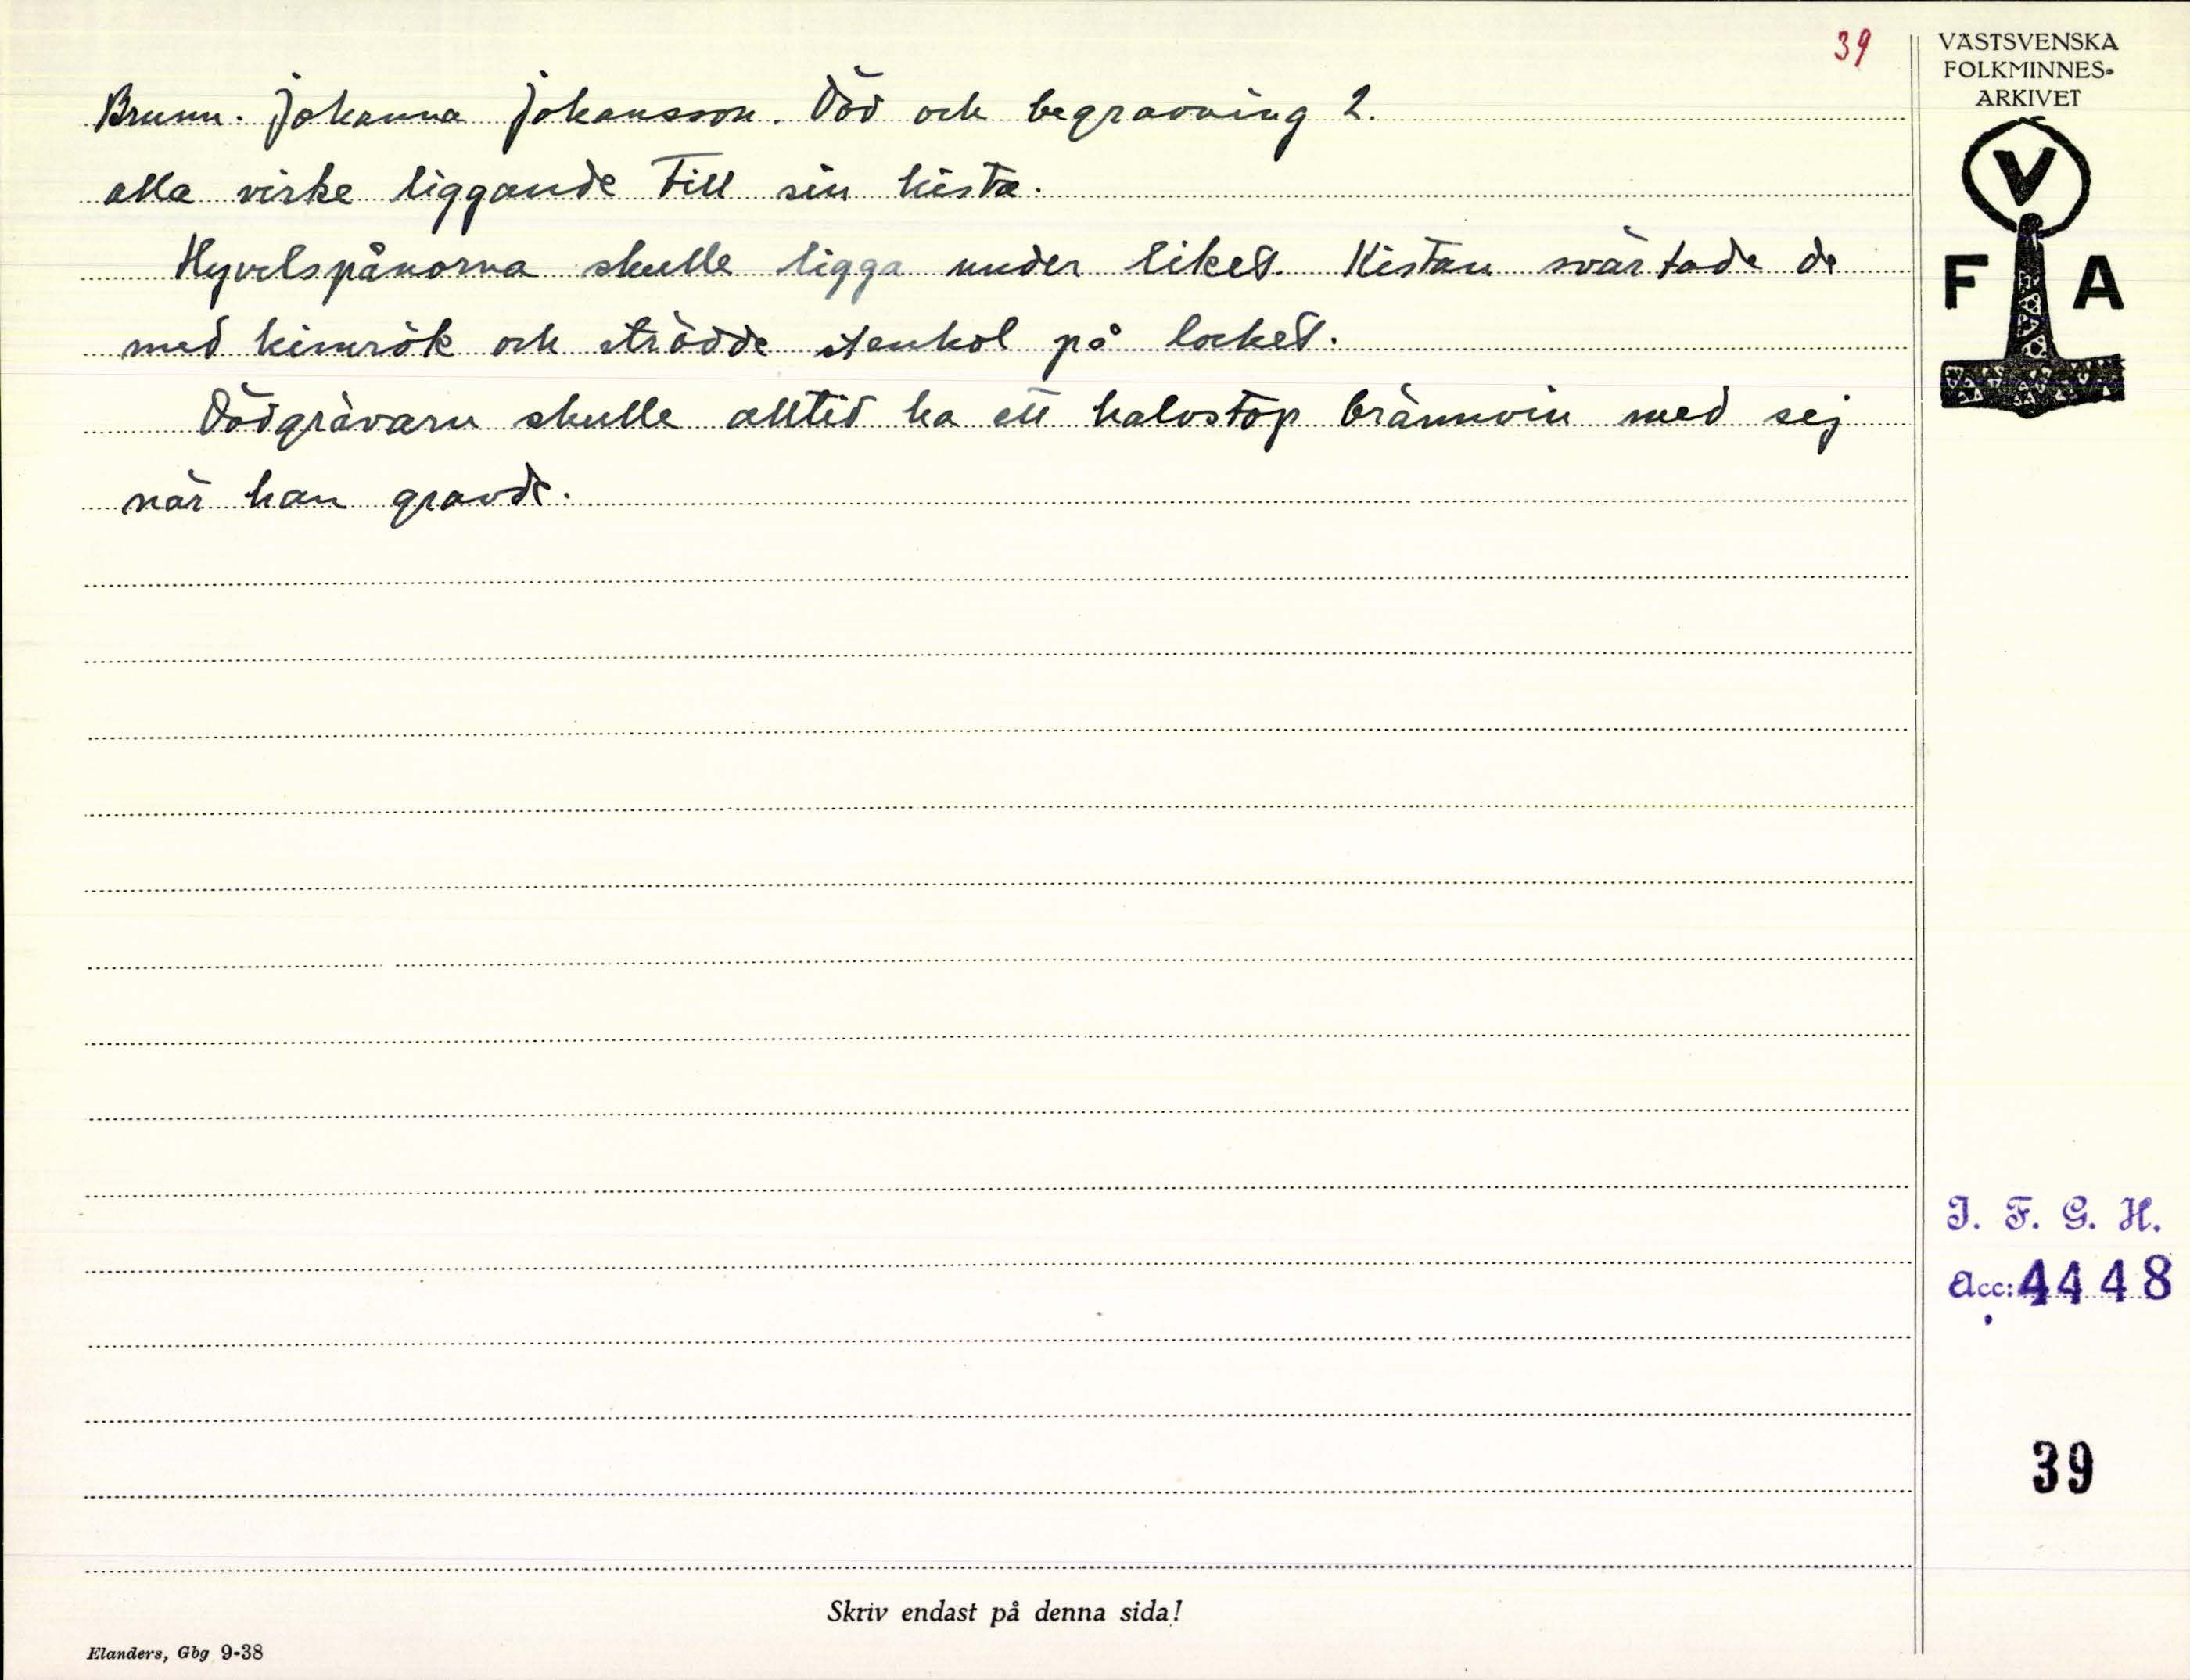 39
Brunn. Johanna Johansson. Död och begravning 2.
alla virke liggande till sin kista.
Hyvelspånorna skulle ligga under liket. Kistan svärtade de
med kimrök och strödde stenkol på locket.
Dödgrävarn skulle alltid ha ett halvstop brännvin med sej
när han gravde.
VÄSTSVENSKA
FOLKMINNES-
ARKIVET
V
F A
I. F. G. H.
Acc: 4448
39
Skriv endast på denna sida!
Elanders, Gbg 9-38